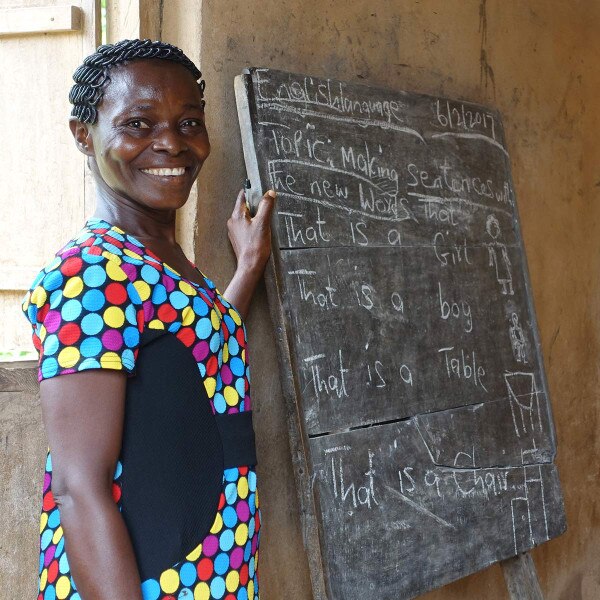 English language 6/2/2017
Topic: Making sentences with
the new words That
That is a Girl
That is a boy
That is a Table
That is a Chair.